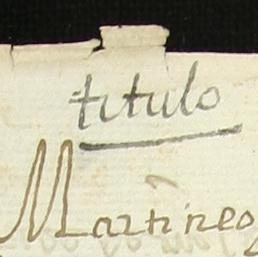 titulo
Martineo